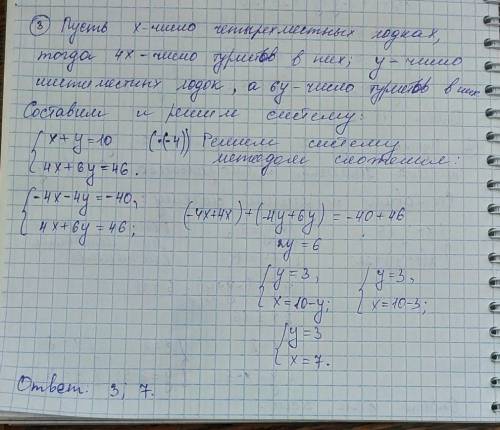 ③ Пусть x-число четырехместных лодках,
тогда 4x-число туристов в них; y-число
шестиместных лодок, а 6y-число туристов в них
Составим и решим систему:
{ x+y=10 (·(-4)) Решим систему
4x+6y=46. методом сложения:
{ -4x-4y=-40, (-4x+4x)+(-4y+6y)=-40+46
4x+6y=46; 2y=6
{ y=3, { y=3,
x=10-y; x=10-3;
{ y=3
x=7.
Ответ: 3; 7.